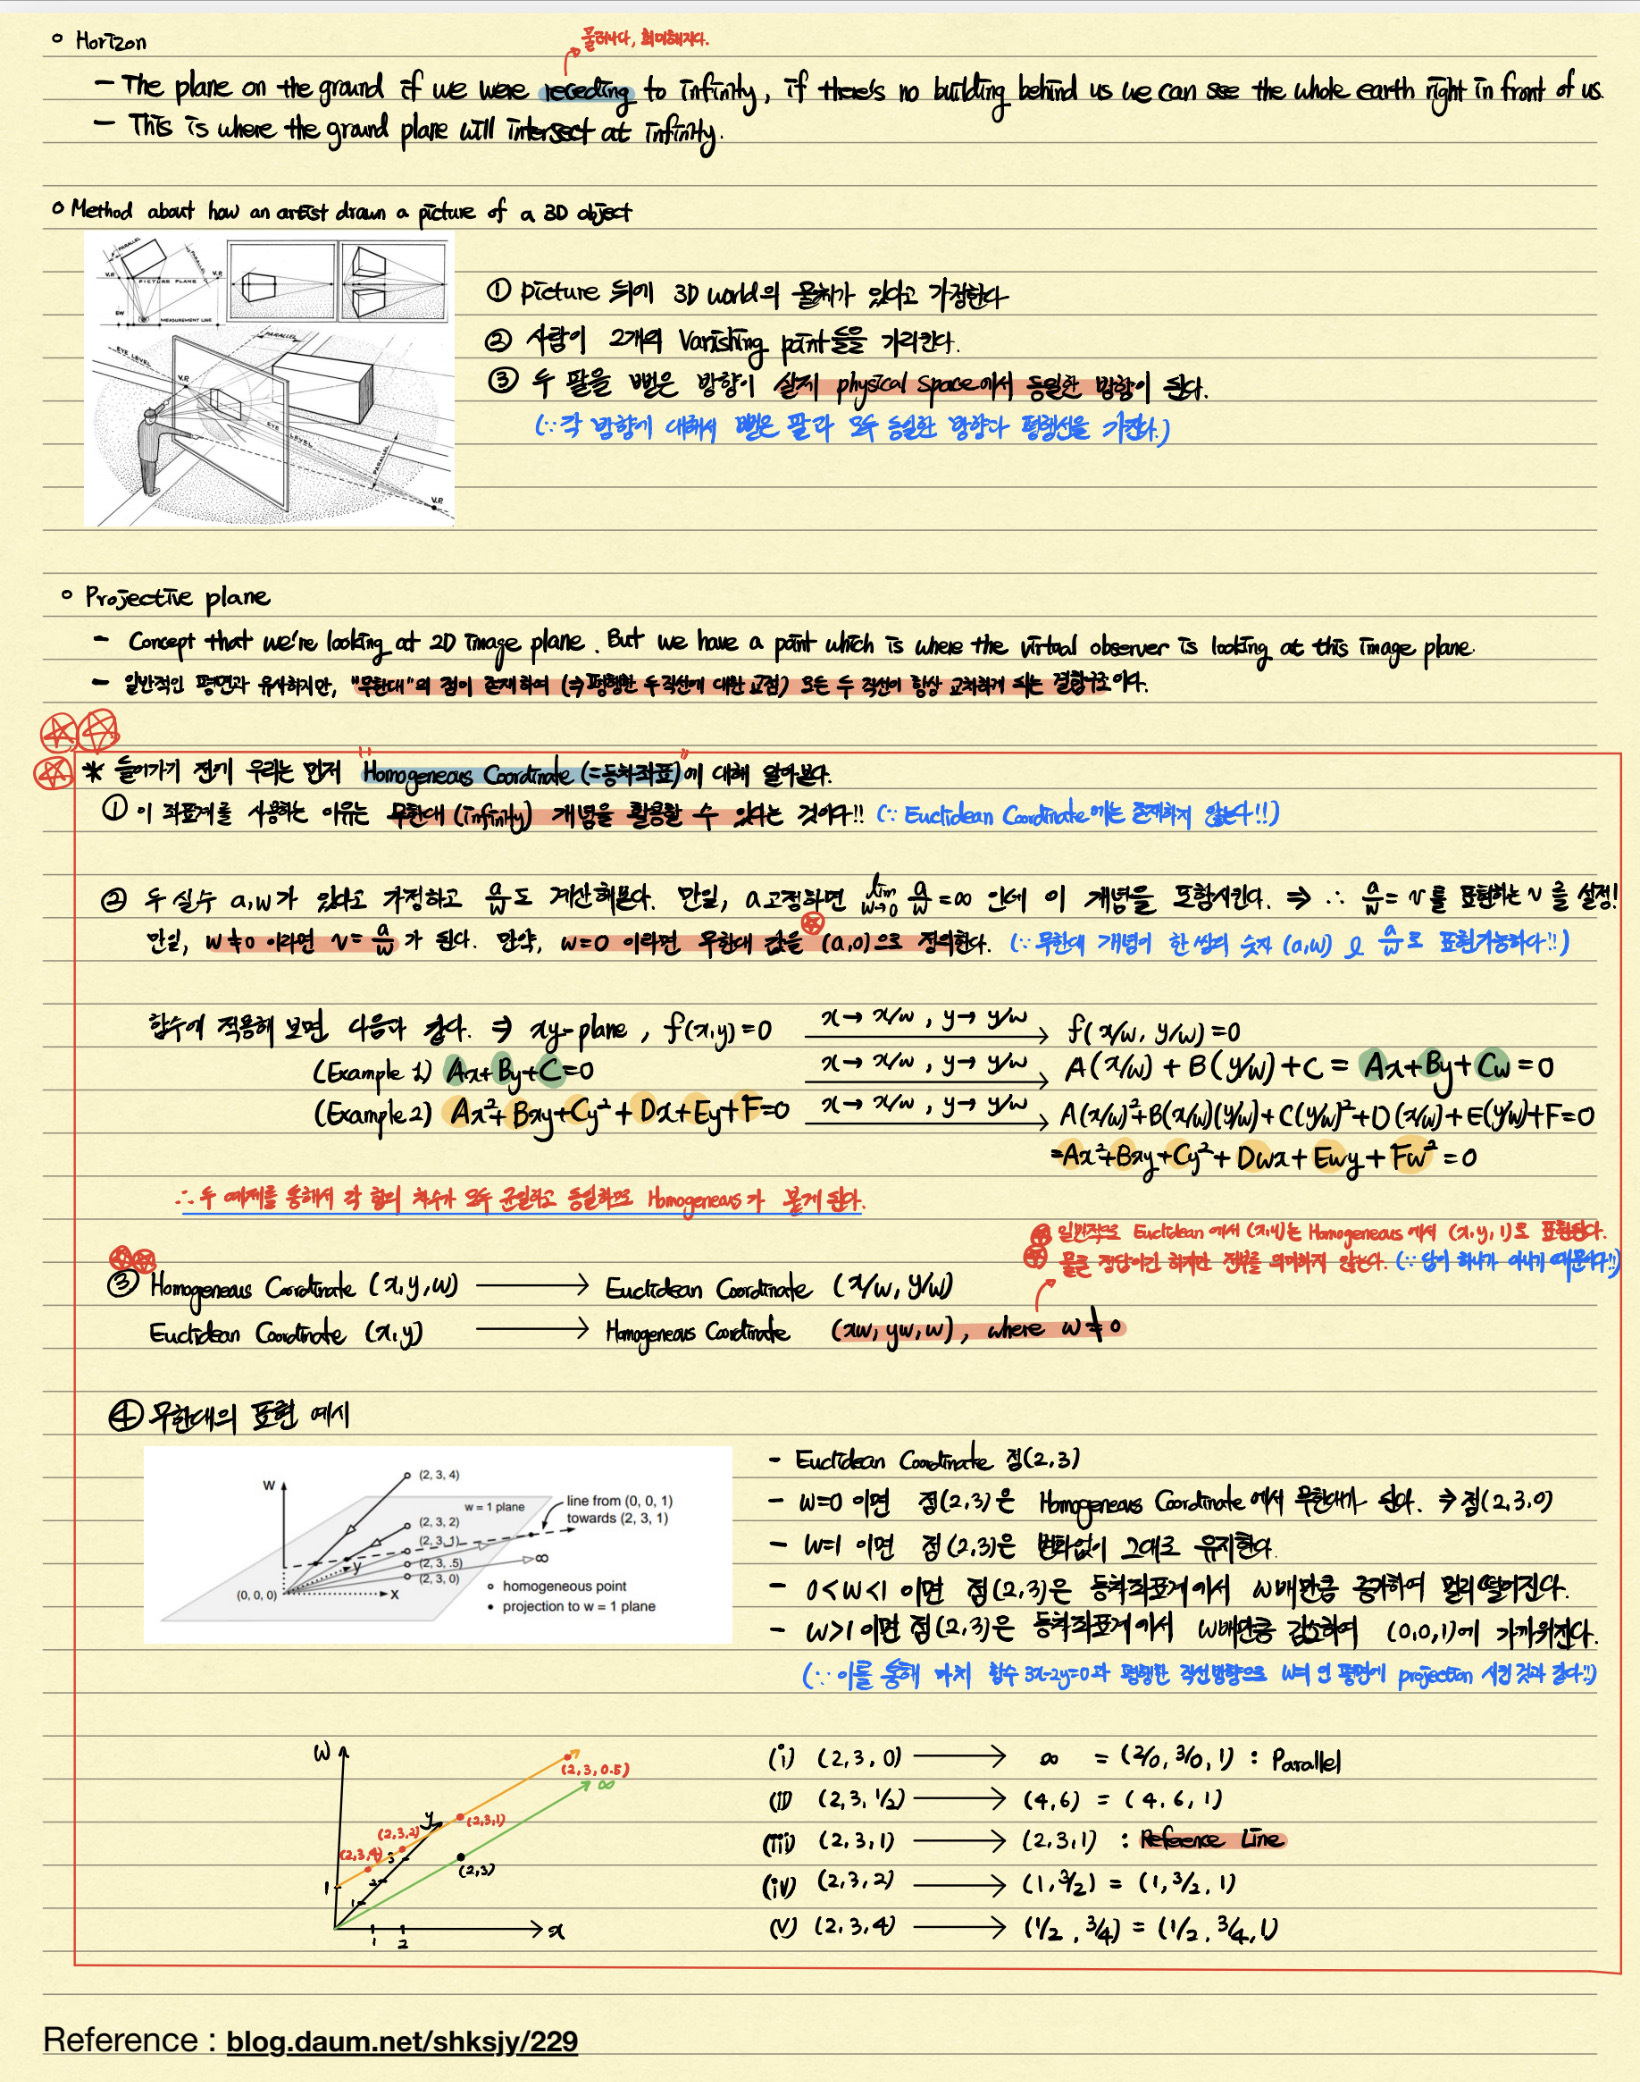 ○ Horizon
물러나다, 희미해지다.
- The plane on the ground if we were receding to infinity, if there's no building behind us we can see the whole earth right in front of us.
- This is where the ground plane will intersect at infinity.
○ Method about how an artist drawn a picture of a 3D object
PARALLEL
PARALLEL
V.P.
V.P.
PICTURE PLANE
MEASUREMENT LINE
PARALLEL
EYE LEVEL
V.P.
EYE LEVEL
PARALLEL
V.P.
① picture 뒤에 3D world의 물체가 있다고 가정한다
② 사람이 2개의 Vanishing point들을 가리킨다.
③ 두 팔을 뻗은 방향이 실제 physical space에서 동일한 방향이 된다.
(∵각 방향에 대해서 뻗은 팔과 모두 동일한 방향과 평행선을 가진다.)
○ Projective plane
- Concept that we're looking at 2D image plane. But we have a point which is where the virtual observer is looking at this image plane.
- 일반적인 평면과 유사하지만, "무한대"의 점이 존재하여 (⇒평행한 두직선에 대한 교점) 모든 두 직선이 항상 교차하게 되는 결합구조이다.
* 들어가기 전에 우리는 먼저 "Homogeneous Coordinate (=동차좌표)"에 대해 알아본다.
① 이 좌표계를 사용하는 이유는 무한대 (infinity) 개념을 활용할 수 있다는 것이다!! (∵ Euclidean Coordinate에는 존재하지 않는다!!)
② 두 실수 a,w가 있다고 가정하고 a/w도 계산해본다. 만일, a고정하면 lim w→0 a/w = ∞ 인데 이 개념을 포함시킨다. ⇒ ∴ a/w = v를 표현하는 v를 설정!
만일, w≠0 이라면 v= a/w 가 된다. 만약, w=0 이라면 무한대 값을 (a,0)으로 정의한다. (∵무한대 개념이 한 쌍의 숫자 (a,w) 의 a/w로 표현가능하다!!)
함수에 적용해 보면 다음과 같다. ⇒ xy-plane, f(x,y)=0 x→x/w, y→y/w f(x/w, y/w)=0
(Example 1) Ax+By+C=0 x→x/w, y→y/w A(x/w)+B(y/w)+C = Ax+By+Cw=0
(Example 2) Ax²+Bxy+Cy²+Dx+Ey+F=0 x→x/w, y→y/w A(x/w)²+B(x/w)(y/w)+C(y/w)²+D(x/w)+E(y/w)+F=0
=Ax²+Bxy+Cy²+Dwx+Ewy+Fw²=0
∴ 두 예제를 통해서 각 항의 차수가 모두 균일하고 동일하므로 Homogeneous가 붙게 된다.
일반적으로 Euclidean 에서 (x,y)는 Homogeneous 에서 (x,y,1)로 표현된다.
물론 정답이긴 하지만 전부를 의미하지 않는다. (∵답이 하나가 아니기 때문이다!!)
③ Homogeneous Coordinate (x,y,w) → Euclidean Coordinate (x/w, y/w)
Euclidean Coordinate (x,y) → Homogeneous Coordinate (xw, yw, w), where w≠0
④ 무한대의 표현 예시
W
(2, 3, 4)
w = 1 plane
line from (0, 0, 1)
towards (2, 3, 1)
(2, 3, 2)
(2, 3, 1)
(2, 3, .5)
(2, 3, 0)
∞
y
x
(0, 0, 0)
○ homogeneous point
● projection to w = 1 plane
- Euclidean Coordinate 점(2,3)
- w=0 이면 점(2,3)은 Homogeneous Coordinate 에서 무한대가 된다. ⇒ 점(2,3,0)
- w=1 이면 점(2,3)은 변화없이 그대로 유지한다.
- 0<w<1 이면 점(2,3)은 동차좌표계에서 w배만큼 증가하여 멀리 떨어진다.
- w>1 이면 점(2,3)은 동차좌표계에서 w배만큼 감소하여 (0,0,1)에 가까워진다.
(∵이를 통해 마치 함수 3x-2y=0과 평행한 직선방향으로 w=1 인 평면에 projection 시킨 것과 같다!!)
W
(2,3,0.5)
∞
y
(2,3,1)
(2,3,2)
(2,3,4)
3
(2,3)
2
1
1
x
1
2
(i) (2,3,0) → ∞ = (2/0, 3/0, 1) : Parallel
(ii) (2,3,1/2) → (4,6) = (4,6,1)
(iii) (2,3,1) → (2,3,1) : Reference Line
(iv) (2,3,2) → (1,3/2) = (1,3/2,1)
(v) (2,3,4) → (1/2,3/4) = (1/2,3/4,1)
Reference : blog.daum.net/shksjy/229